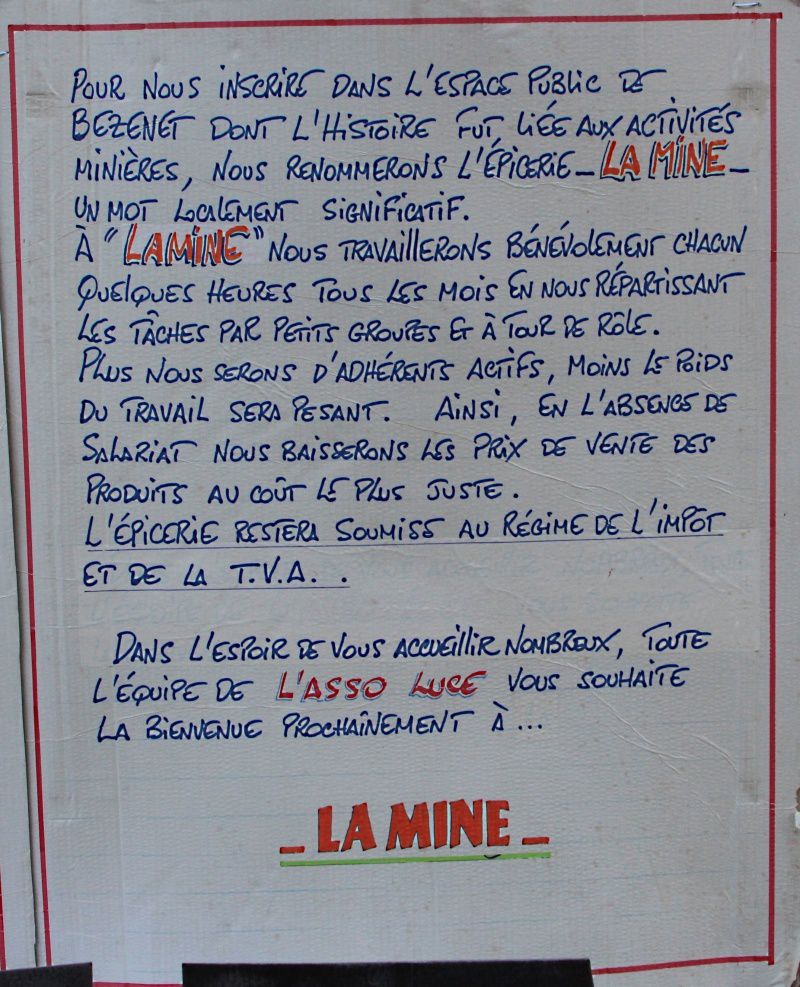 POUR NOUS INSCRIRE DANS L'ESPACE PUBLIC DE
BEZENET DONT L'HISTOIRE FUT LIÉE AUX ACTIVITÉS
MINIÈRES, NOUS RENOMMERONS L'ÉPICERIE _ LA MINE _
UN MOT LOCALEMENT SIGNIFICATIF.
À "LA MINE" NOUS TRAVAILLERONS BÉNÉVOLEMENT CHACUN
QUELQUES HEURES TOUS LES MOIS EN NOUS RÉPARTISSANT
LES TÂCHES PAR PETITS GROUPES ET À TOUR DE RÔLE.
PLUS NOUS SERONS D'ADHÉRENTS ACTIFS, MOINS LE POIDS
DU TRAVAIL SERA PESANT. AINSI, EN L'ABSENCE DE
SALARIAT NOUS BAISSERONS LES PRIX DE VENTE DES
PRODUITS AU COÛT LE PLUS JUSTE.
L'ÉPICERIE RESTERA SOUMISE AU RÉGIME DE L'IMPÔT
ET DE LA T.V.A. .
DANS L'ESPOIR DE VOUS ACCUEILLIR NOMBREUX, TOUTE
L'ÉQUIPE DE L'ASSO LUCE VOUS SOUHAITE
LA BIENVENUE PROCHAÎNEMENT À ...
_ LA MINE _